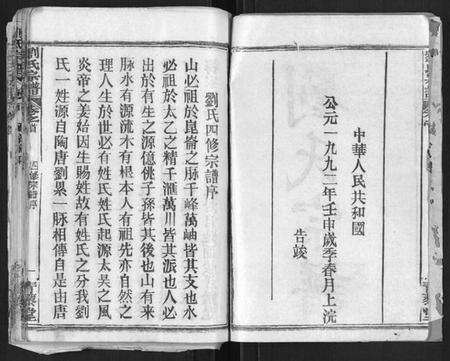 中華人民共和國
公元一九九二年壬申歲季春月上浣
告竣
劉氏四修宗譜序
山必祖於崑崙之脉千峰萬岫皆其支也水
必祖於太乙之精千滙萬川皆其派也人必
出於有生之源億佛子孫皆其後也山有來
脉水有源流木有根本人有祖先亦自然之
理人生於世必有姓氏姓氏起源太昊之風
炎帝之姜始因生賜姓故有姓氏之分我劉
氏一姓源自陶唐劉累一脉相傳自是由唐
劉氏宗譜
卷之首
四修宗譜序
一